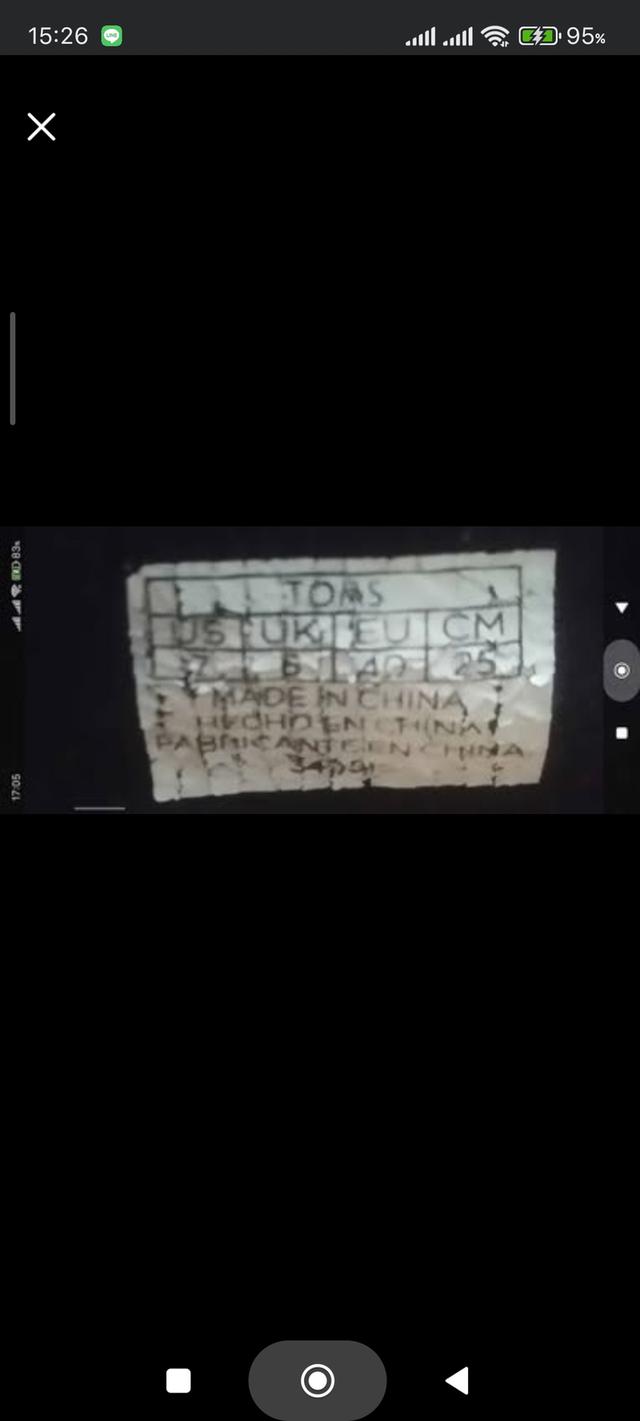 15:26
95%
83%
17:05
TOMS
US UK EU CM
7 6 40 25
MADE IN CHINA
HECHO EN CHINA
FABRICANTE EN CHINA